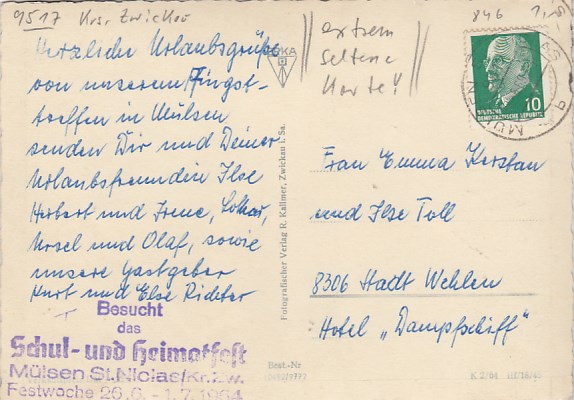 9517 Krs. Zwickau
846 1,5
extrem
seltene
Karte!!
Herzliche Urlaubsgrüße
von unserem Pfingst-
treffen in Mülsen
senden Dir und Deiner
Urlaubsfreundin Ilse
Herbert und Irene, Lothar,
Ursel und Olaf, sowie
unsere Gastgeber
Kurt und Else Richter
Besucht
das
Schul- und Heimatfest
Mülsen St.Niclas/Kr.Zw.
Festwoche 26.6. - 1.7.1964
Fotografischer Verlag R. Kallmer, Zwickau i. Sa.
Best.-Nr
10
DEUTSCHE
DEMOKRATISCHE REPUBLIK
Frau Emma Kerstan
und Ilse Toll
8306 Stadt Wehlen
Hotel „Dampfschiff“